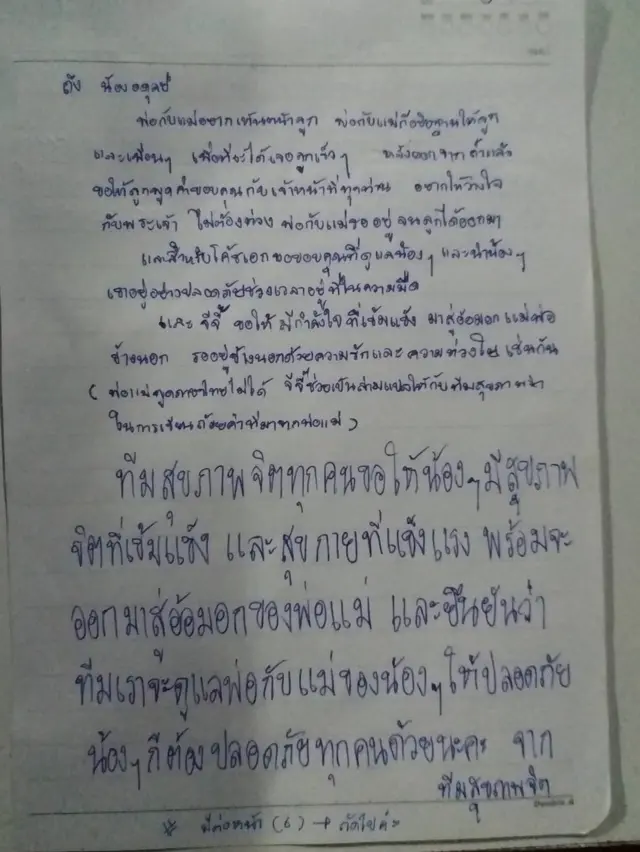 ถึง น้องอดุลย์
พ่อกับแม่อยากเห็นหน้าลูก พ่อกับแม่ก็อธิษฐานให้ลูก
และเพื่อนๆ เพื่อที่จะได้เจอลูกเร็วๆ หลังออกจากถ้ำแล้ว
ขอให้ลูกพูดคำขอบคุณกับเจ้าหน้าที่ทุกท่าน อยากให้วางใจ
กับพระเจ้า ไม่ต้องห่วง พ่อกับแม่รออยู่ จนลูกได้ออกมา
และสำหรับโค้ชเอกขอขอบคุณที่ดูแลน้องๆ และนำน้องๆ
เขาอยู่อย่างปลอดภัยช่วงเวลาอยู่ที่ในความมืด
และ จีจี้ ขอให้ มีกำลังใจที่เข้มแข็ง มาสู่อ้อมอก แม่พ่อ
ข้างนอก รออยู่ข้างนอกด้วยความรักและความห่วงใย เช่นกัน
(พ่อแม่พูดภาษาไทยไม่ได้ จีจี้ช่วยเป็นล่ามแปลให้กับทีมสุขภาพ
ในการเขียนถ้อยคำที่มาจากพ่อแม่)
ทีมสุขภาพจิตทุกคนขอให้น้องๆมีสุขภาพ
จิตที่เข้มแข็ง และสุขกายที่แข็งแรง พร้อมจะ
ออกมาสู่อ้อมอกของพ่อแม่ และยืนยันว่า
ทีมเราจะดูแลพ่อกับแม่ของน้องๆให้ปลอดภัย
น้องๆก็ต้องปลอดภัยทุกคนด้วยนะคะ จาก
ทีมสุขภาพจิต
มีต่อหน้า (6) → ถัดไปค่ะ